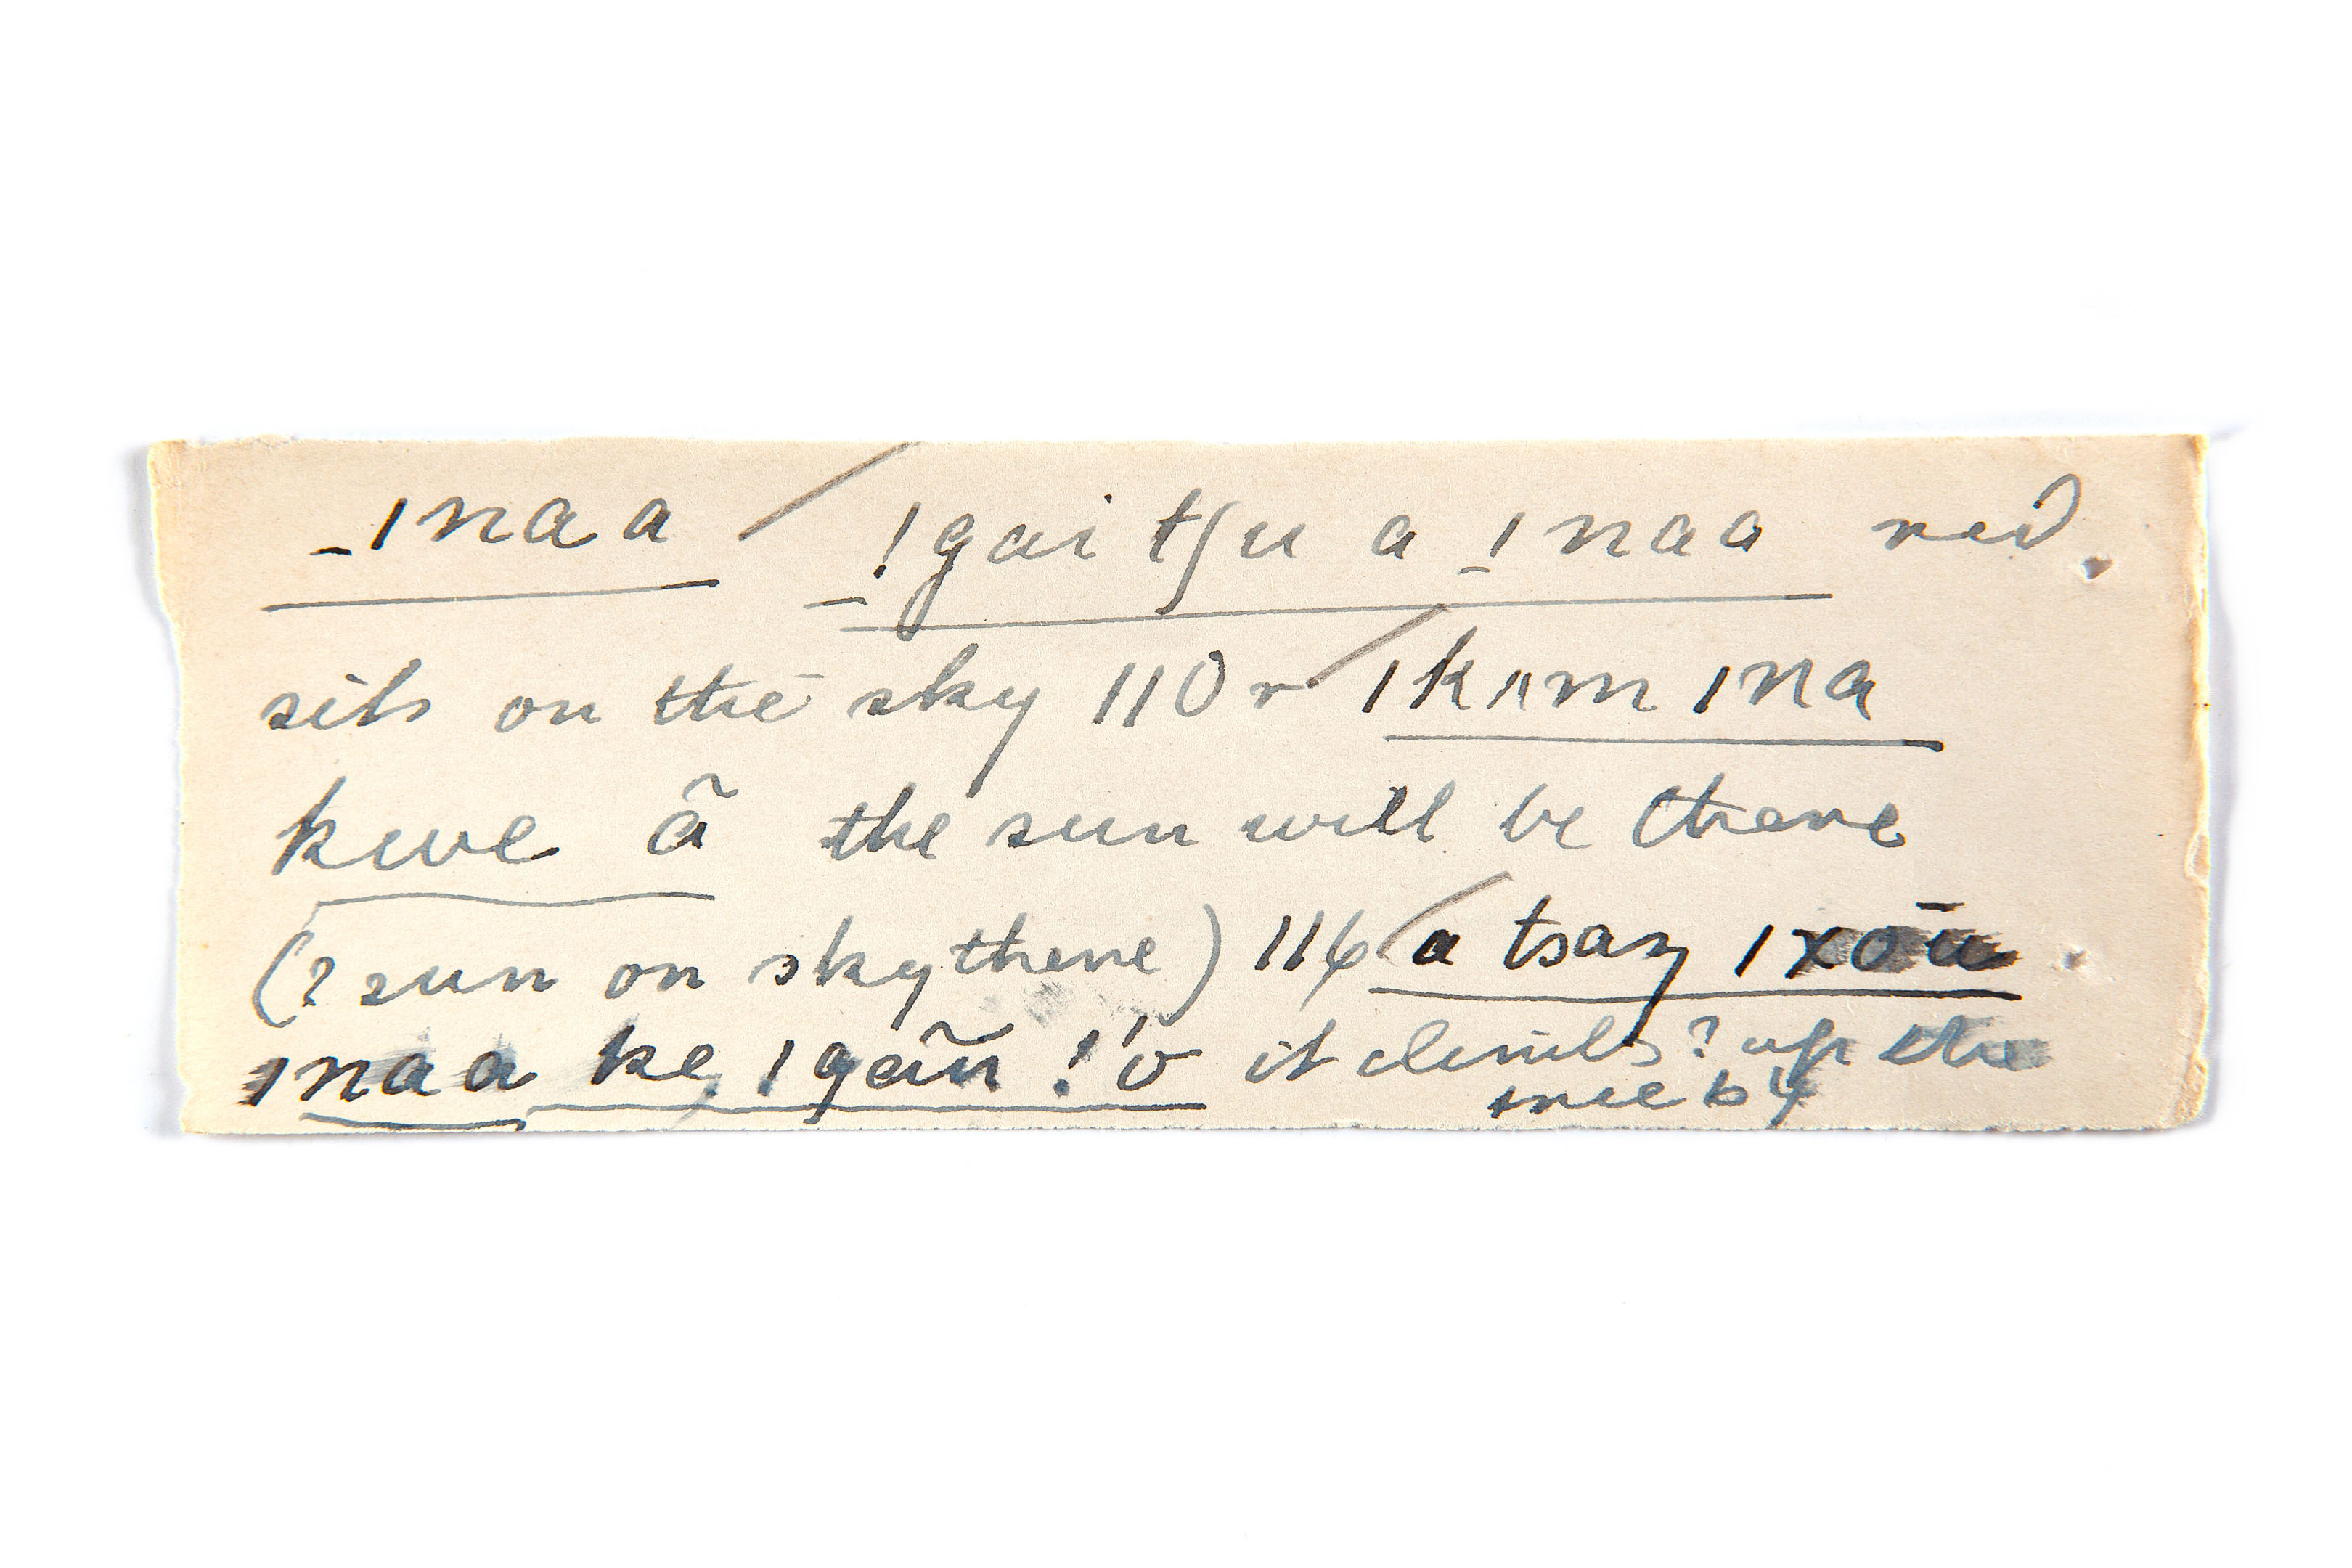 _ǀnaa / _ǃgai tʃu a ǀ̱naa red
sits on the sky 110r / ǀkʌm ǀna
kwe ã the sun will be there
(? sun on sky there) 116 / a tsaŋ ǀxōu
ǀnaa ke ǀgaĩn ǃ'o it climbs? up the
tree by